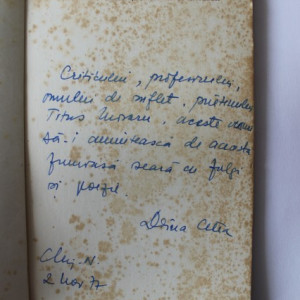 Criticului, profesorului,
omului de suflet, prietenului
Titus Moraru, aceste
să-i amintească de această
frumoasă seară cu fulgi
și poezie.
Doina Cetea
Cluj-N.
2 nov. 77